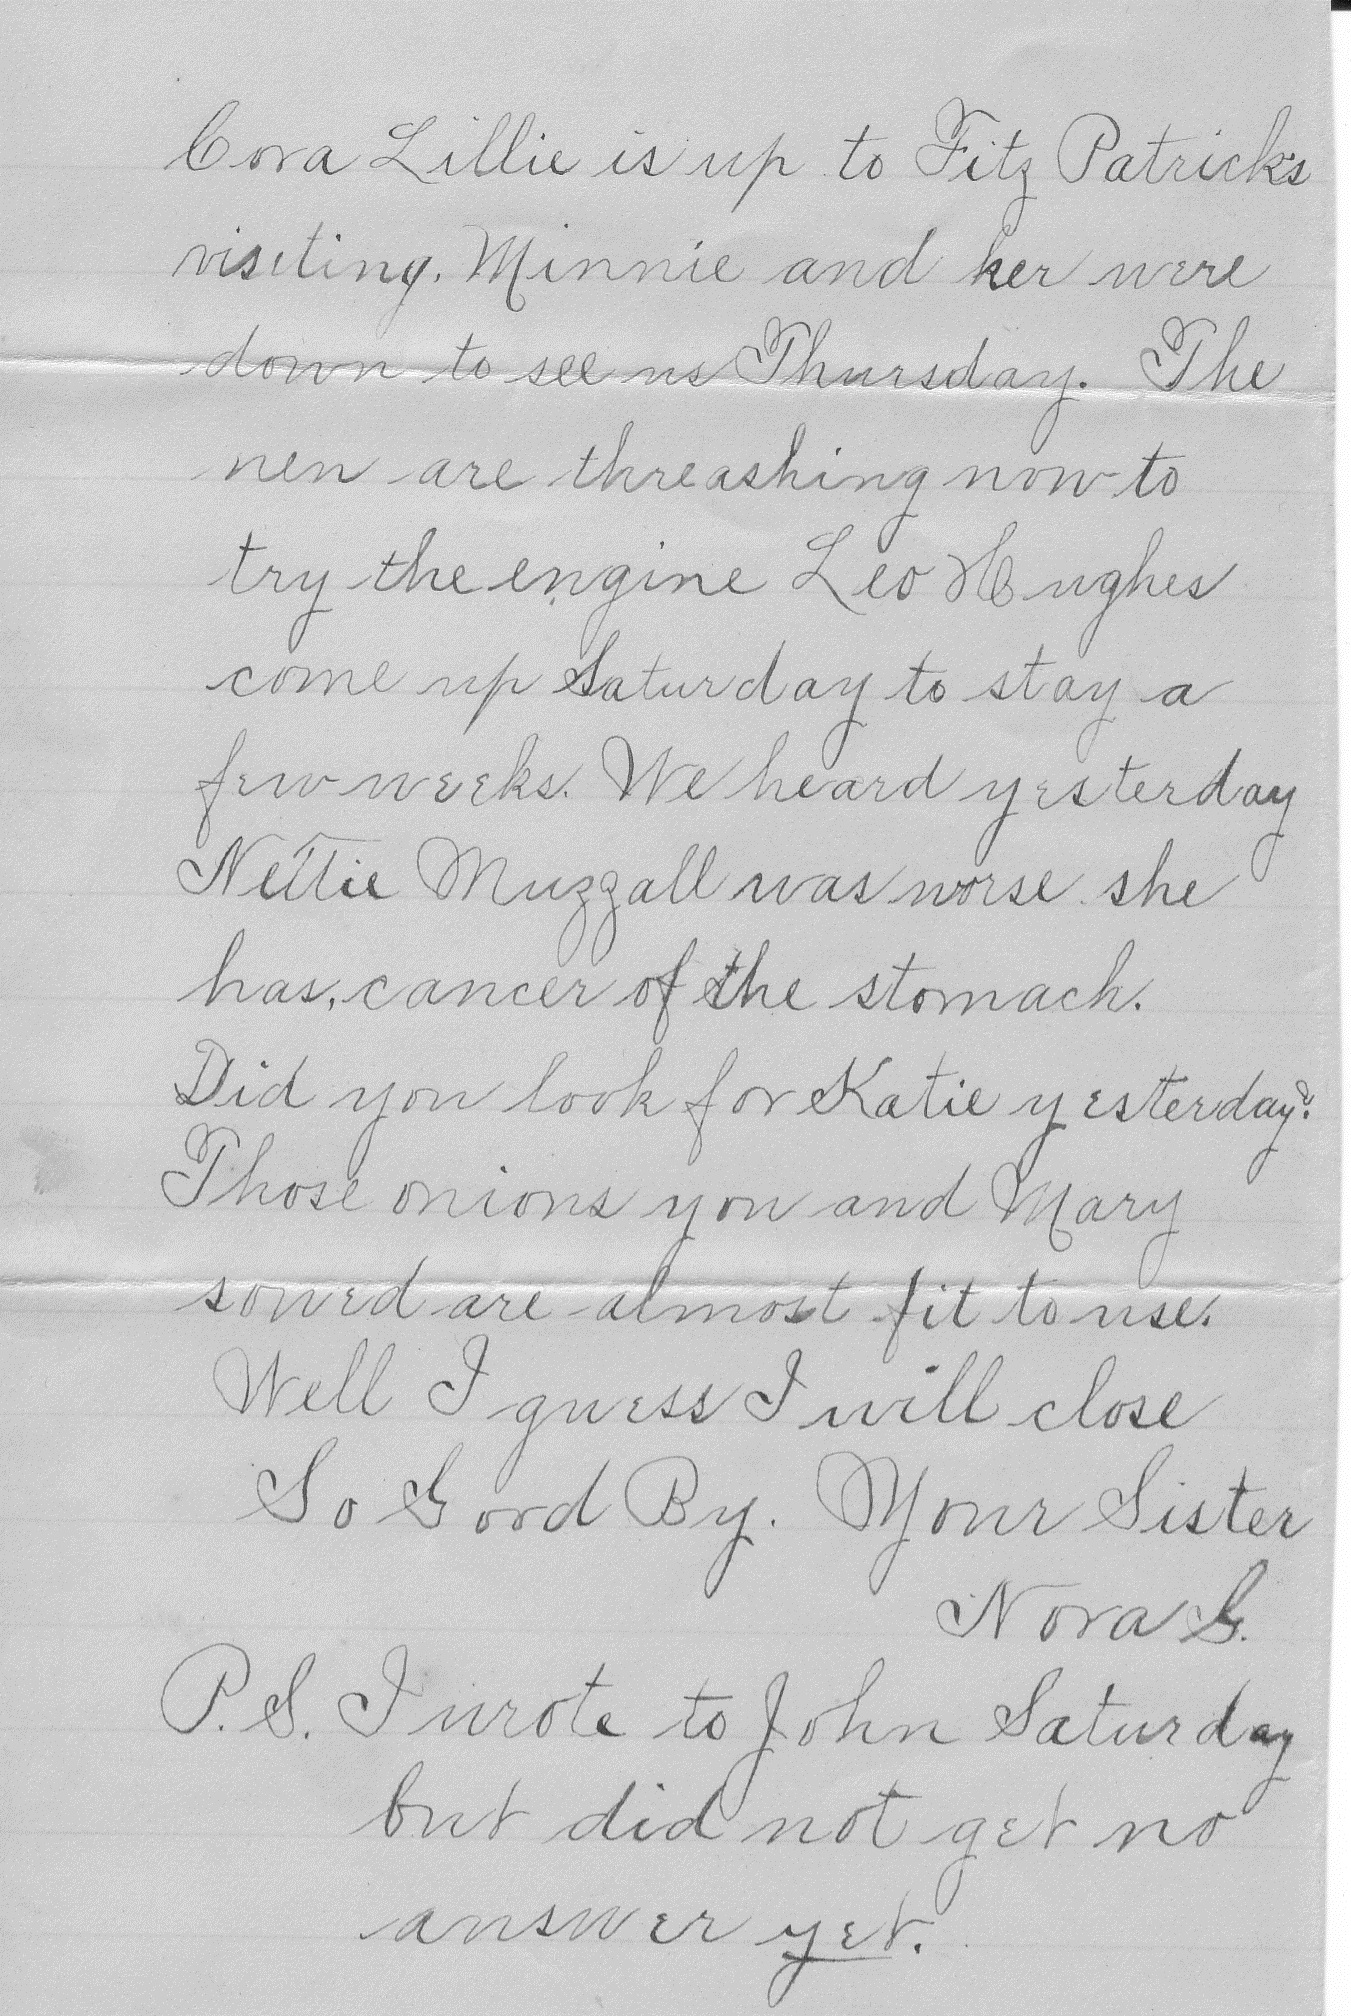 Cora Lillie is up to Fitz Patrick's
viseting. Minnie and her were
down to see us Thursday. The
men are threashing now to
try the engine Leo Hughes
come up Saturday to stay a
few weeks. We heard yesterday
Nettie Muzzall was worse she
has, cancer of the stomach.
Did you look for Katie yesterday?
Those onions you and Mary
sowed are almost fit to use.
Well I guess I will close
So Good By. Your Sister
Nora G.
P.S. I wrote to John Saturday
but did not get no
answer yet.